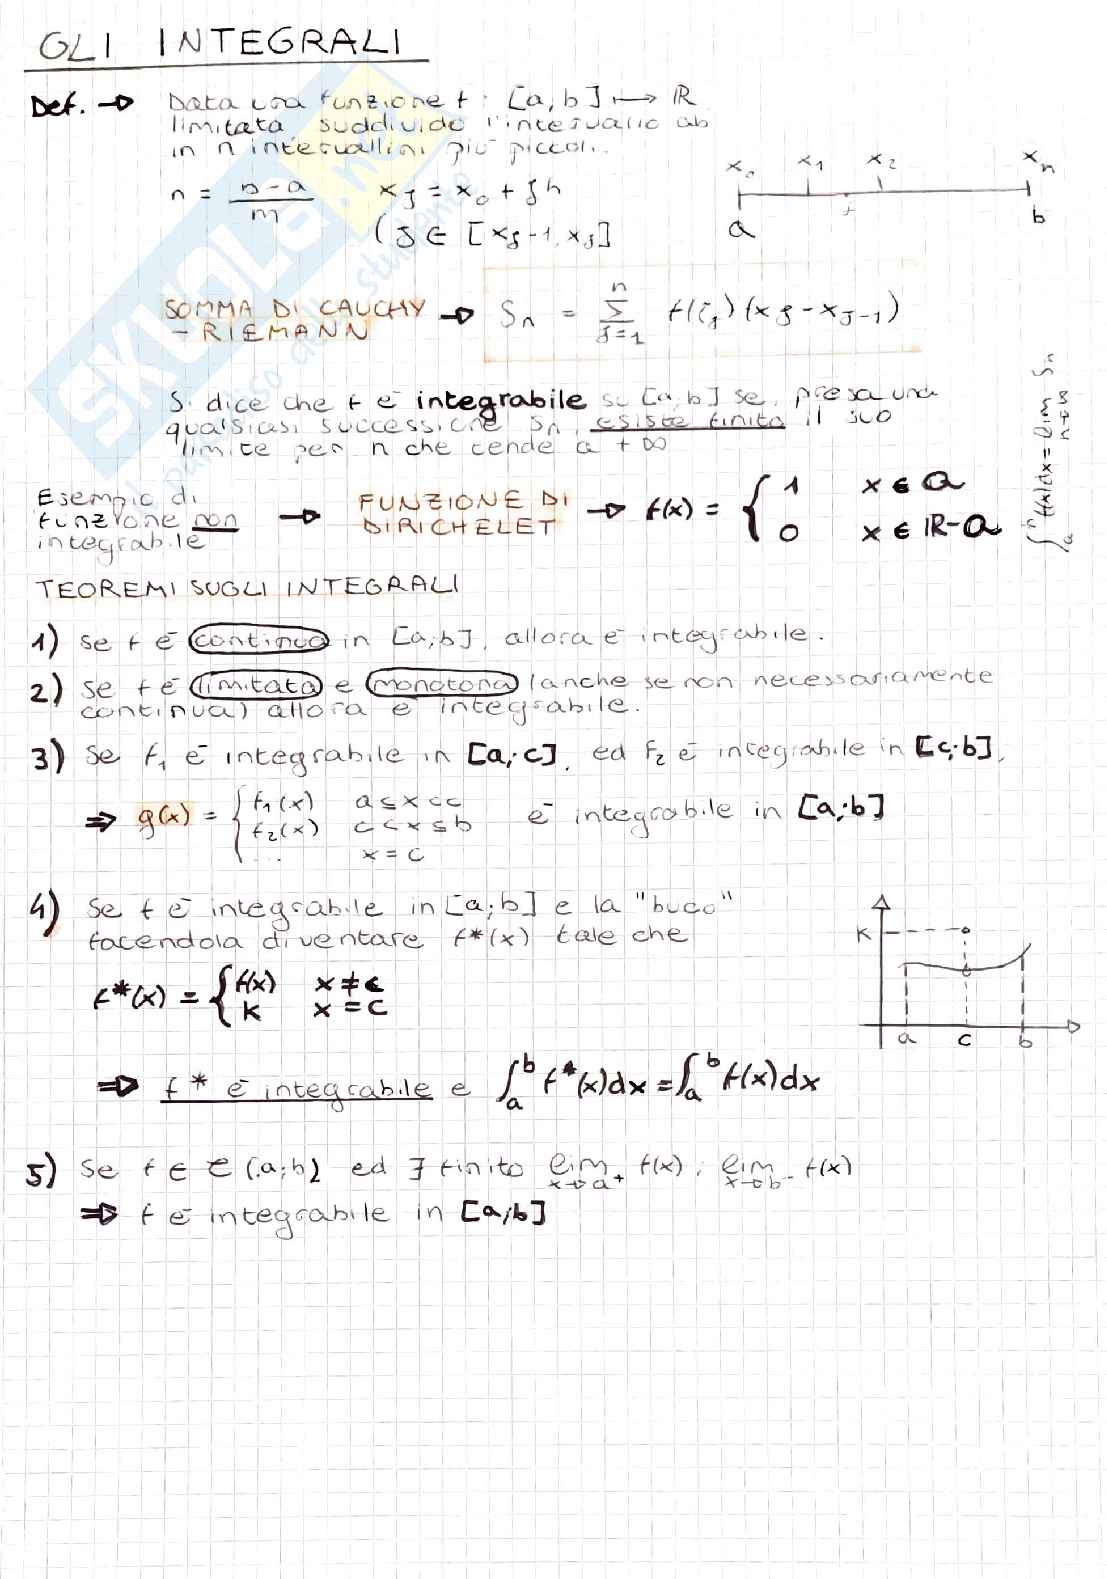 GLI INTEGRALI
Def. → Data una funzione f: [a,b] ↦ ℝ
limitata suddivido l'intervallo ab
in n intervallini più piccoli.
n = b-a / m    xj = x₀ + jh
(j ∈ [xj-1, xj]
x₀ x₁ x₂ xn
a t b
SOMMA DI CAUCHY
- RIEMANN → Sn = Σ j=1 n f(ζj)(xj - xj-1)
Si dice che f è integrabile su [a,b] se, presa una
qualsiasi successione Sn, esiste finito il suo
limite per n che tende a +∞
∫ₐᵇ f(x)dx = lim n→∞ Sn
Esempio di
funzione non
integrabile → FUNZIONE DI
DIRICHELET → f(x) = { 1 x ∈ Q
0 x ∈ ℝ-Q
TEOREMI SUGLI INTEGRALI
1) se f è continua in [a;b], allora è integrabile.
2) se f è limitata e monotona (anche se non necessariamente
continua) allora è integrabile.
3) Se f₁ è integrabile in [a;c], ed f₂ è integrabile in [c;b],
⇒ g(x) = { f₁(x) a≤x<c
f₂(x) c<x≤b
... x=c
è integrabile in [a;b]
4) Se f è integrabile in [a;b] e la "buco"
facendola diventare f*(x) tale che
f*(x) = { f(x) x≠c
K x=c
K
a c b
⇒ f* è integrabile e ∫ₐᵇ f*(x)dx = ∫ₐᵇ f(x)dx
5) Se f ∈ C(a;b) ed ∃ finito lim x→a⁺ f(x); lim x→b⁻ f(x)
⇒ f è integrabile in [a;b]
SKUOLA.net
il paradiso dello studente